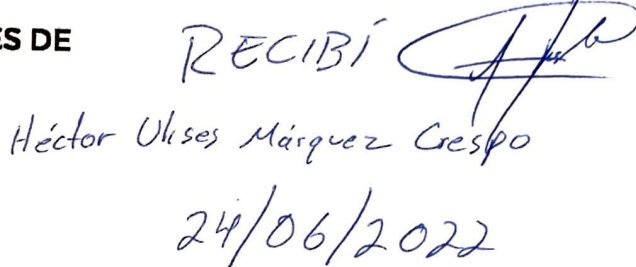 ES DE
RECIBÍ
Héctor Ulises Márquez Crespo
24/06/2022